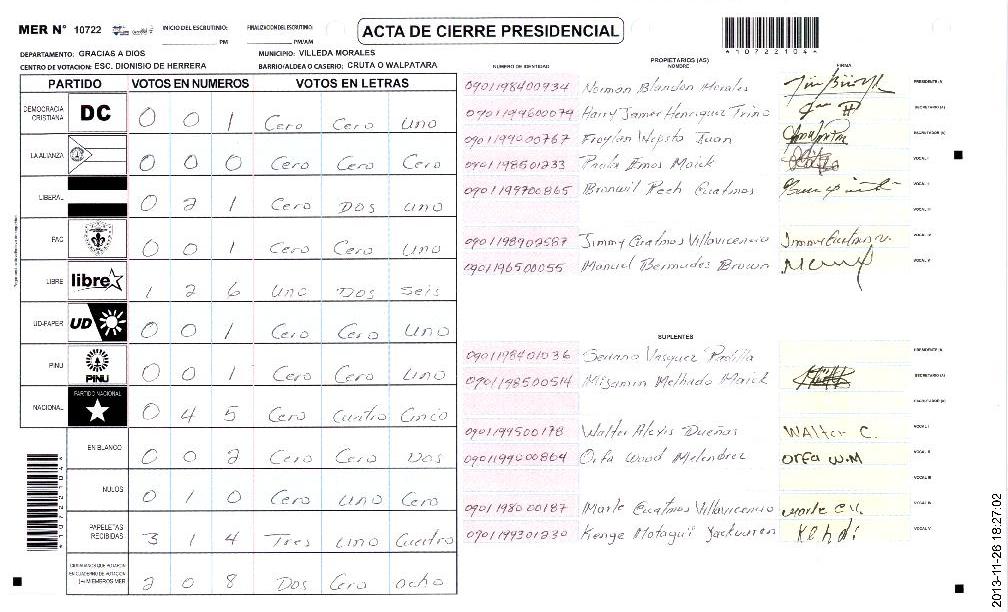 MER N° 10722 INICIO DEL ESCRUTINIO: PM FINALIZACION DEL ESCRUTINIO: PM/AM ACTA DE CIERRE PRESIDENCIAL
*107221044*
DEPARTAMENTO: GRACIAS A DIOS MUNICIPIO: VILLEDA MORALES
CENTRO DE VOTACION: ESC. DIONISIO DE HERRERA BARRIO/ALDEA O CASERIO: CRUTA O WALPATARA
PARTIDO VOTOS EN NUMEROS VOTOS EN LETRAS
DEMOCRACIA CRISTIANA DC 0 0 1 Cero Cero Uno
LA ALIANZA 0 0 0 Cero Cero Cero
LIBERAL 0 2 1 Cero Dos Uno
PAC 0 0 1 Cero Cero Uno
LIBRE libre 1 2 6 Uno Dos Seis
UD-FAPER UD 0 0 1 Cero Cero Uno
PINU PINU 0 0 1 Cero Cero Uno
NACIONAL PARTIDO NACIONAL 0 4 5 Cero Cuatro Cinco
EN BLANCO 0 0 2 Cero Cero Dos
NULOS 0 1 0 Cero Uno Cero
PAPELETAS RECIBIDAS 3 1 4 Tres Uno Cuatro
CIUDADANOS QUE VOTARON EN CUADERNO DE VOTACION (+) MIEMBROS MER 2 0 8 Dos Cero ocho
PROPIETARIOS (AS)
NUMERO DE IDENTIDAD NOMBRE FIRMA
0901198400934 Norman Blandon Morales PRESIDENTE (A)
0901199600079 Harry Jamer Henriquez Trino SECRETARIO (A)
0901199000767 Froylan Juan ESCRUTADOR (A)
0901198501233 Paula Emos Maick VOCAL I
0901199700865 Pech Cuatmos VOCAL II
VOCAL III
0901198902587 Jimmy Cuatmos Villavicencio VOCAL IV
0901196500055 Manuel Bermudes Brown VOCAL V
SUPLENTES
0901198401036 Vasquez Padilla PRESIDENTE (A)
0901198500514 Melhado Maick SECRETARIO (A)
ESCRUTADOR (A)
0901199500178 Walter Alexis Dueñas WALter C. VOCAL I
0901199000864 Orfa Wood Melendrez orfa W.M VOCAL II
VOCAL III
0901198000187 Marle Cuatmos Villavicencio VOCAL IV
0901199301230 Kenge VOCAL V
2013-11-26 18:27:02